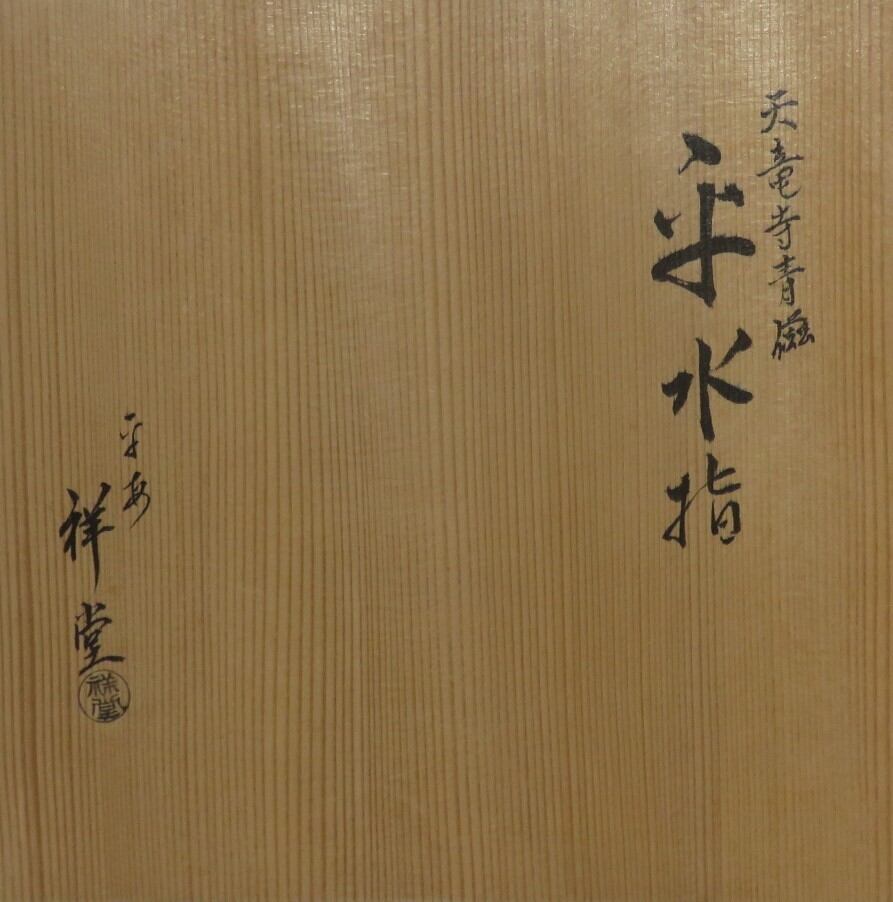 天竜寺青磁
平水指
平安
祥堂
祥堂